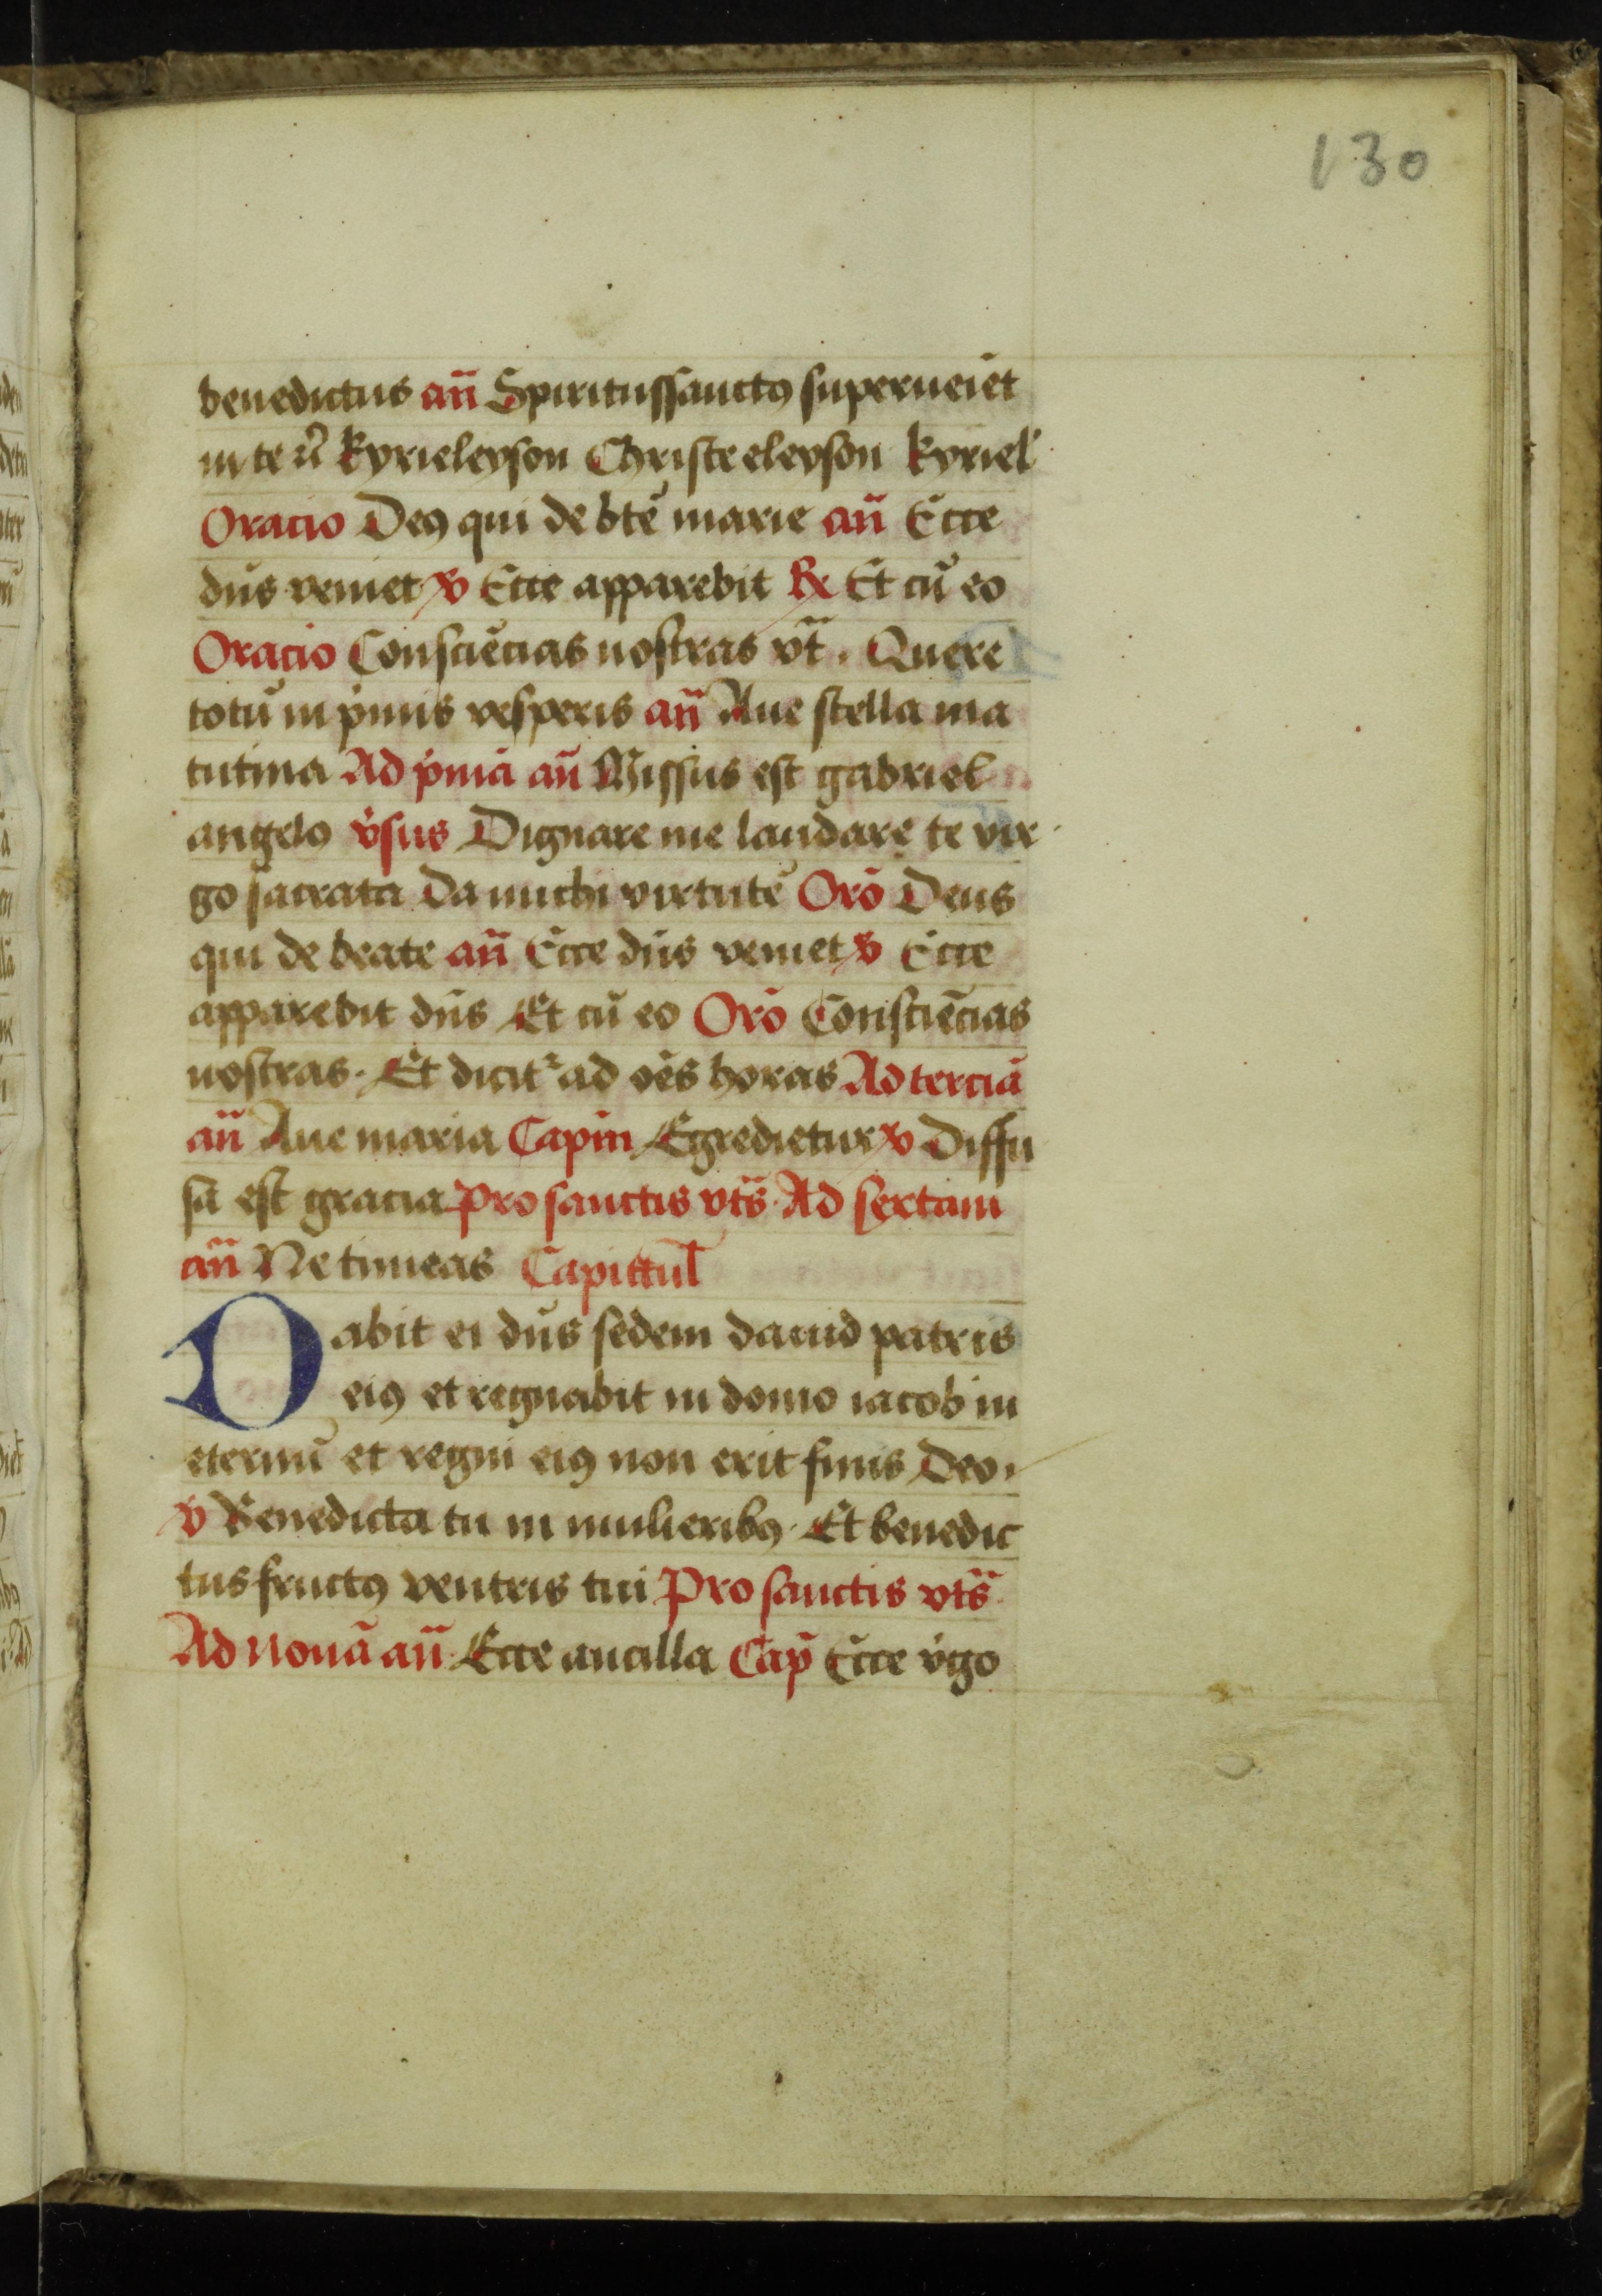 130
benedictus an̄ Spiritussanctꝯ superueiēt
in te r̄ kyrieleyson Christeeleyson kyriel'
Oracio Deꝯ qui de btē marie an̄ Ecce
dn̄s veniet ꝟ Ecce apparebit ℞ Et cū eo
Oracio Consciēcias nostras vt̄ . Quere
totū in pͥmis vesperis an̄ Aue stella ma
tutina Ad pͥmā an̄ Missus est gabriel
angelꝯ v̓sus Dignare me laudare te vir
go sacrata Da michi virtutē Orō Deus
qui de beate an̄ Ecce dn̄s veniet ꝟ Ecce
apparebit dn̄s Et cū eo Orō Consciēcias
nostras. Et dicit᷑ ad oēs horas Ad terciā
an̄ Aue maria Capm̄ Egredietur ꝟ Diffu
sa est gracia pro sanctis vts̄ Ad sextam
an̄ Ne timeas Capittul̄
Dabit ei dn̄s sedem dauid patris
eiꝯ et regnabit in domo iacob in
eternū et regni eiꝯ non erit finis Deo.
ꝟ Benedicta tu in mulieribꝯ. Et benedic
tus fructꝯ ventris tui Pro sanctis vts̄
Ad nonā an̄ Ecce ancilla Cap̄ Ecce v̓go